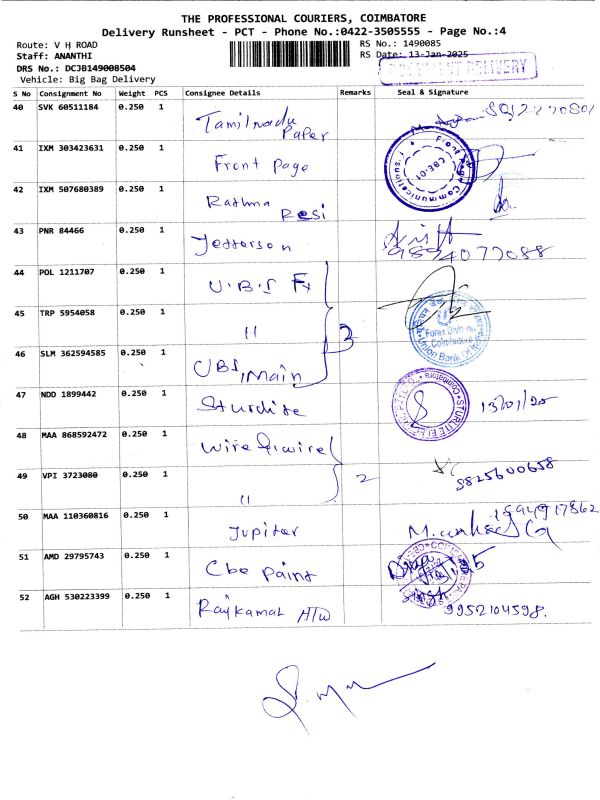 THE PROFESSIONAL COURIERS, COIMBATORE
Delivery Runsheet - PCT - Phone No.:0422-3505555 - Page No.:4
Route: V H ROAD
RS No.: 1490085
Staff: ANANTHI
RS Date: 13-Jan-2025
DRS No.: DCJB149008504
Vehicle: Big Bag Delivery
S No Consignment No Weight PCS Consignee Details Remarks Seal & Signature
40 SVK 60511184 0.250 1 Tamilnadu Paper
41 IXM 303423631 0.250 1 Front Page
42 IXM 507680389 0.250 1 Rathna Resi
43 PNR 84466 0.250 1 Jefferson
44 POL 1211707 0.250 1 U.B.S Fx
45 TRP 5954058 0.250 1 " 3
46 SLM 362594585 0.250 1 UBS, Main
47 NDD 1899442 0.250 1 Sturlite 13/01/25
48 MAA 868592472 0.250 1 Wire & Wire
49 VPI 3723080 0.250 1 " 2 9825600658
50 MAA 110360816 0.250 1 Jupiter
51 AMD 29795743 0.250 1 Cbe Paint
52 AGH 530223399 0.250 1 Rajkamal HTW 9952104598.